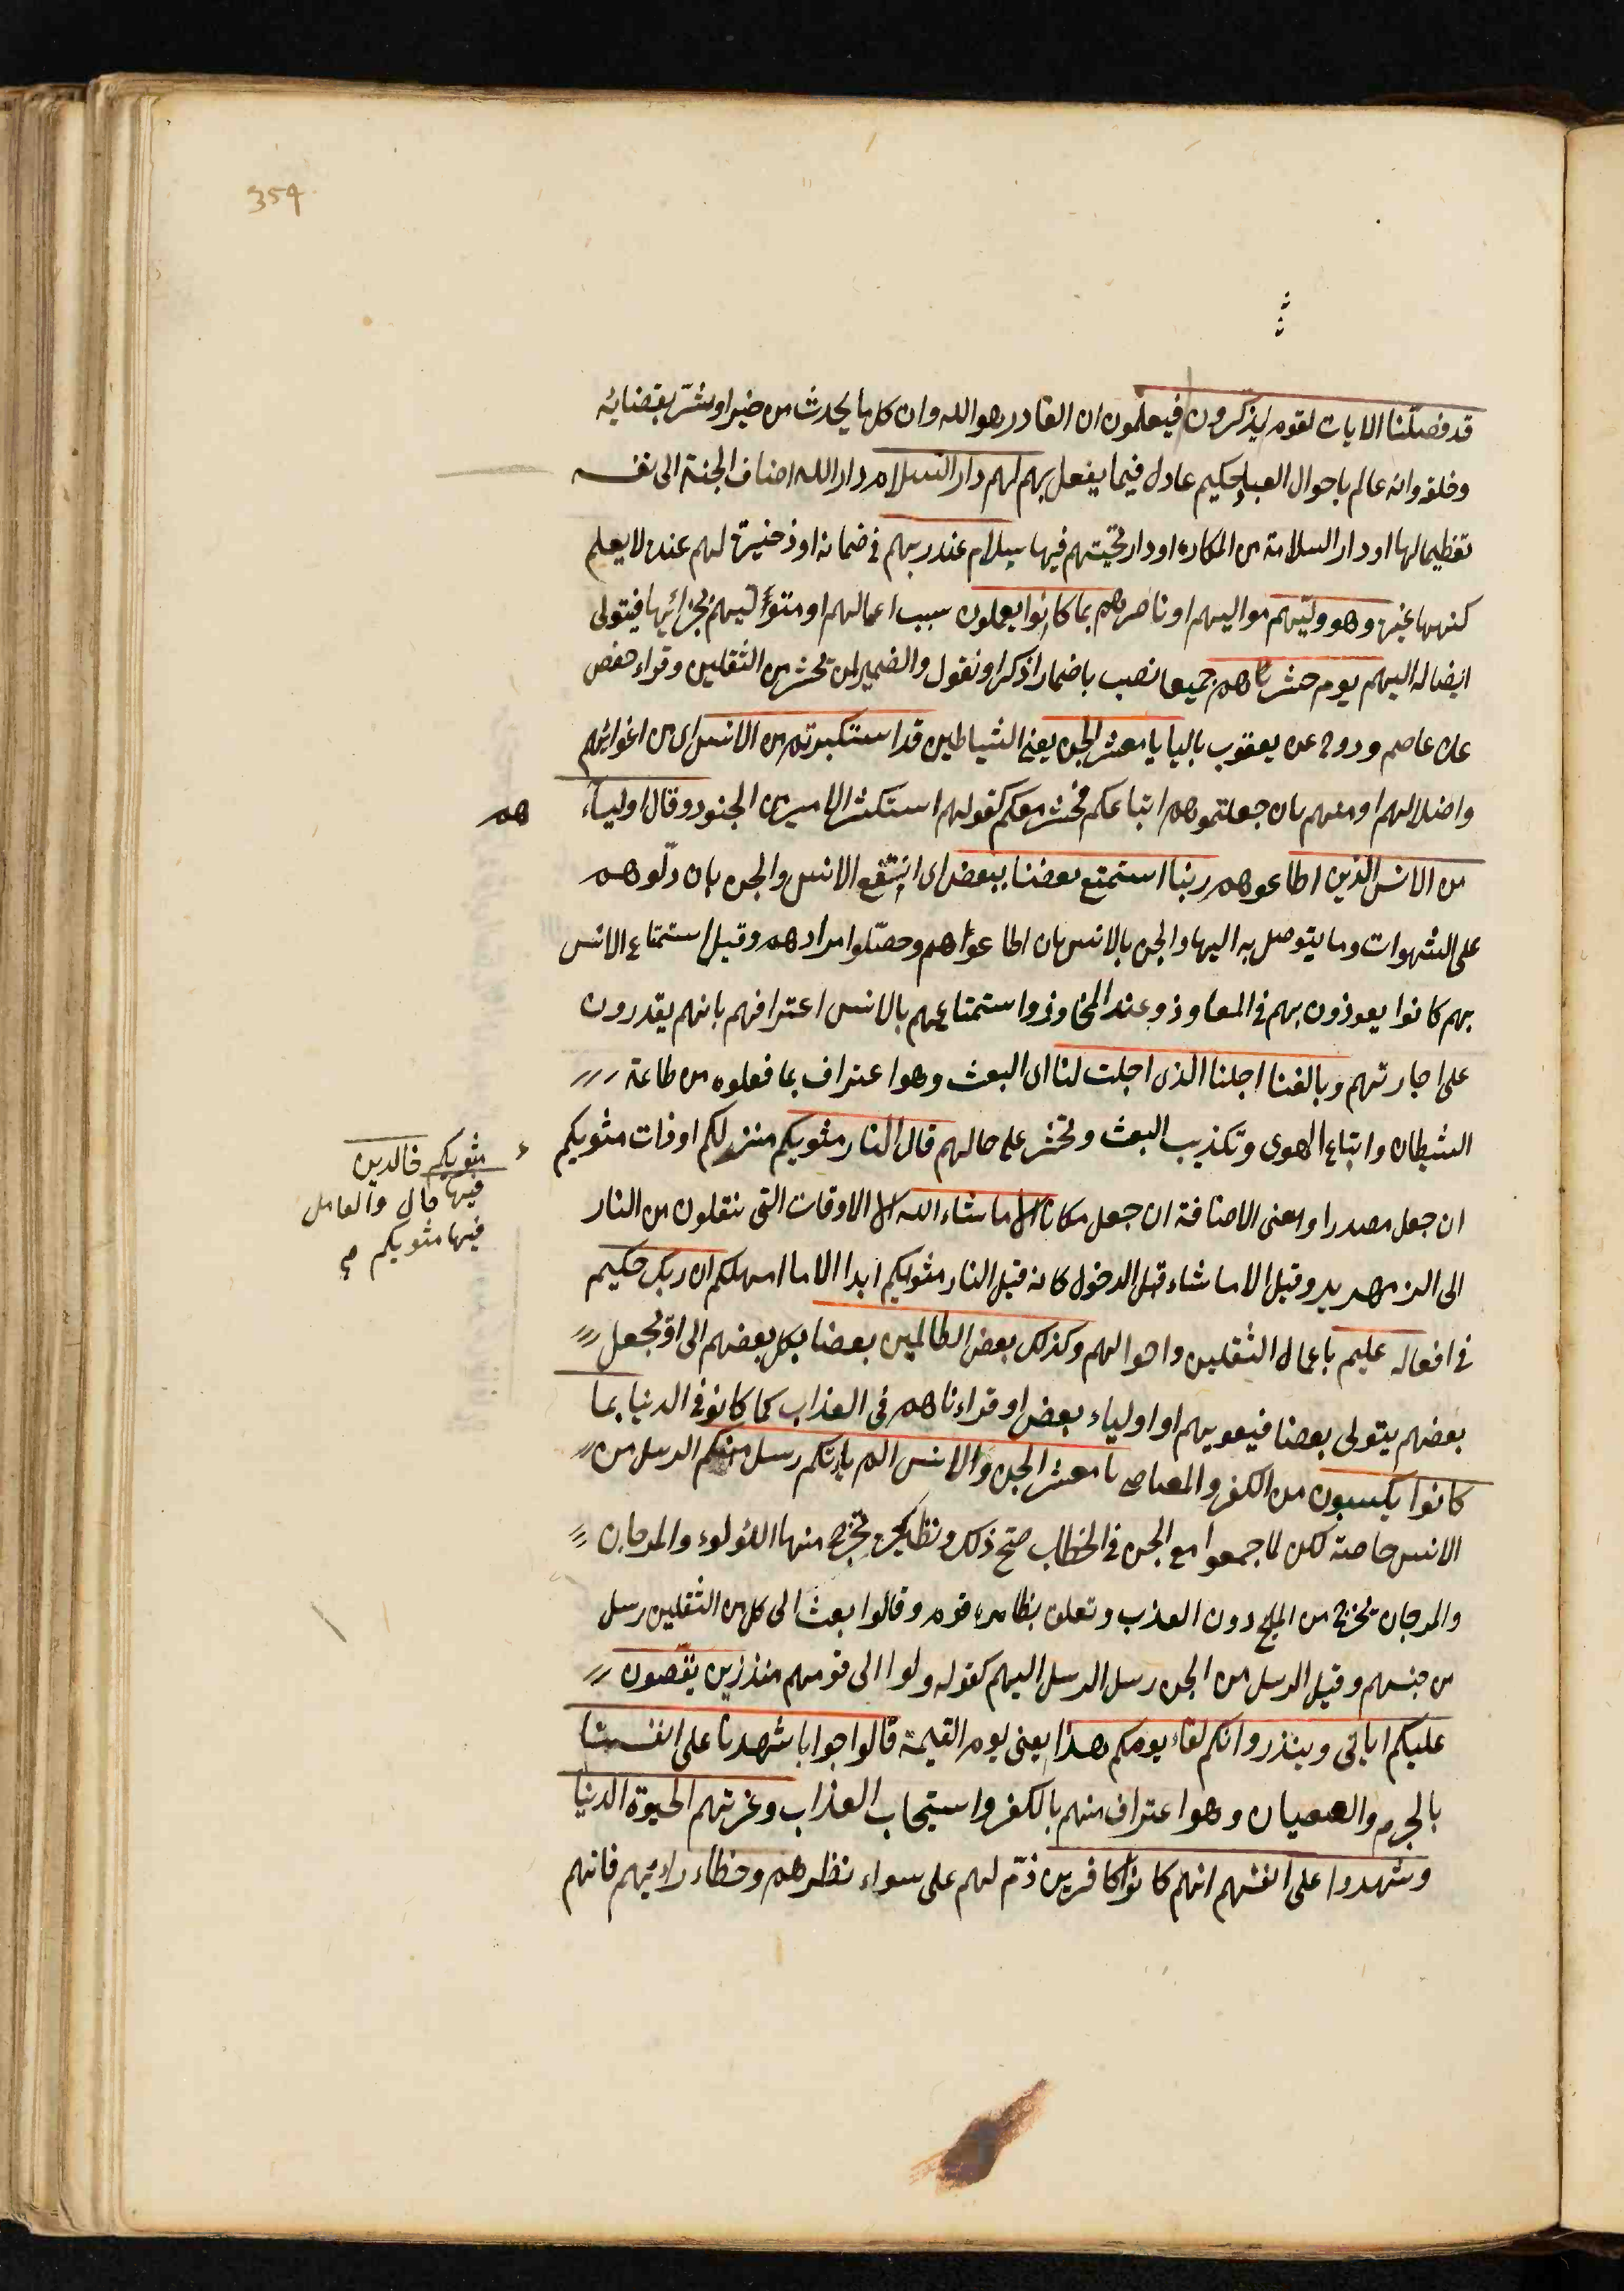 354
قد فصلنا الايات لقوم يذكرون فيعلمون ان القادر هو الله وان كل ما يحدث من خير او شر بقضائه
وخلقه وانه عالم باحوال العباد حكيم عادل فيما يفعل بهم لهم دار السلام دار الله اضاف الجنة الى نفسه
تعظيما لها او دار السلامة من المكاره او دار تحيتهم فيها سلام عند ربهم في ضمانه او ذخيرة لهم عنده لا يعلم
كنهها غيره وهو وليهم مواليهم او ناصرهم بما كانوا يعملون سبب اعمالهم او متوليهم بجزائها فيتولى
ايصاله اليهم يوم حشرناهم جميعا نصب باضمار اذكر او نقول والضمير لمن يحشر من الثقلين وقراء حفص
عن عاصم وروح عن يعقوب بالياء يا معشر الجن يعني الشياطين قد استكبرتم من الانس اى من اغوائهم
واضلالهم او منهم بان جعلتموهم اتباعكم فحشر معكم كقولهم استكثر الامير من الجنود وقال اولياءهم
من الانس الذين اطاعوهم ربنا استمتع بعضنا ببعض اى انتفع الانس والجن بان دلوهم
على الشهوات وما يتوصل به اليها والجن بالانس بان اطاعوهم وحصلوا مرادهم وقيل استمتاع الانس
بهم كانوا يعوذون بهم في المعاوذ وعند المخاوف واستمتاعهم بالانس اعترافهم بانهم يقدرون
على اجارتهم وبلغنا اجلنا الذى اجلت لنا اى البعث وهو اعتراف بما فعلوه من طاعة
الشيطان واتباع الهوى وتكذيب البعث وتحسر على حالهم قال النار مثويكم منزلكم او ذات مثويكم
مثويكم خالدين
فيها حال والعامل
فيها مثويكم
ان جعل مصدرا ومعنى الاضافة ان جعل مكانا الا ما شاء الله الا الاوقات التى ينقلون من النار
الى الزمهرير وقيل الا ما شاء قبل الدخول كانه قيل النار مثويكم ابدا الا ما امهلكم ان ربك حكيم
في افعاله عليم باعمال الثقلين واحوالهم وكذلك بعض الظالمين بعضا يكل بعضهم الى او يجعل
بعضهم يتولى بعضا فيغويهم او اولياء بعض او قراءناهم في العذاب كما كانوا في الدنيا بما
كانوا يكسبون من الكفر والمعاصي يا معشر الجن والانس الم ياتكم رسل منكم الرسل من
الانس خاصة لكن لما جمعوا مع الجن في الخطاب صح ذلك ونظايره يخرج منها اللؤلوء والمرجان
والمرجان يخرج من الملح دون العذب وتعلق بظاهره قوم وقالوا بعث الى كل من الثقلين رسل
من جنسهم وقيل الرسل من الجن رسل الرسل اليهم كقوله ولوا الى قومهم منذرين يقصون
عليكم اياتى وينذرونكم لقاء يومكم هذا يعنى يوم القيمة قالوا جوابا شهدنا على انفسنا
بالجرم والعصيان وهو اعتراف منهم بالكفر واستيجاب العذاب وغرتهم الحيوة الدنيا
وشهدوا على انفسهم انهم كانوا كافرين ذم لهم على سواء نظرهم وخطاء رايهم فانهم